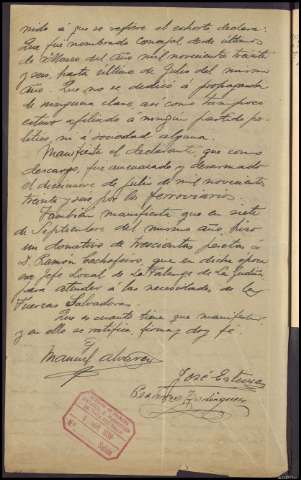 nido á que se refiere el exhorto declara:
Que fué nombrado Concejal desde últimos
de Marzo del año mil novecientos treinta
y seis, hasta últimos de Julio del mismo
año. Que no se dedicó a propaganda
de ninguna clase, así como tampoco
estuvo afiliado a ningún partido po-
lítico, ni a sociedad alguna.
Manifiesta el declarante, que como
descargo, fué encarcelado y desarmado
el diecinueve de julio de mil novecientos
treinta y seis por los ferroviarios.
También manifiesta que en siete
de Septiembre del mismo año, hizo
un donativo de trescientas pesetas á
D. Ramón que en dicha época
era Jefe Local de la Falange de La Gudiña
para atender a las necesidades de las
Fuerzas Salvadoras.
Que es cuanto tiene que manifestar
y en ello se ratifica, firma y doy fé.
Manuel
José Esteves
Rodríguez